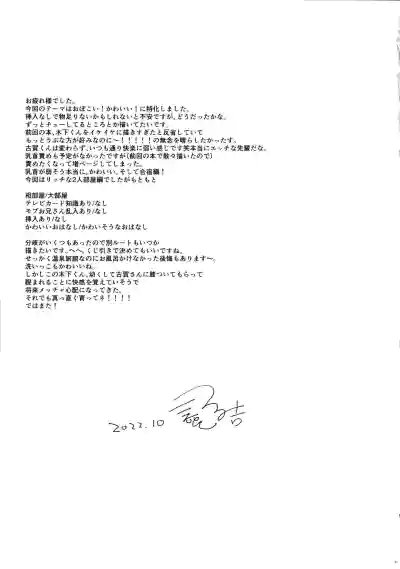 お疲れ様でした。
今回のテーマはおぼこい！かわいい！に特化しました。
挿入なしで物足りないかもしれないと不安ですが、どうだったかな。
ずっとチューしてるところとか描いてたいです。
前回の本、木下くんをイケイケに描きすぎたと反省していて
もっとうぶな方が好みなのに～！！！！！の無念を晴らしたかったす。
古賀くんは変わらず、いつも通り快楽に弱い感じです笑本当にエッチな先輩だな。
乳首責めも予定がなかったですが(前回の本で散々描いたので)
責めたくなって増ページしてしまった。
乳首が弱そう本当に。かわいい。そして合宿編！
今回はリッチな2人部屋編でしたがもともと
相部屋/大部屋
テレビカード知識あり/なし
モブお兄さん乱入あり/なし
挿入あり/なし
かわいいおはなし/かわいそうなおはなし
分岐がいくつもあったので別ルートもいつか
描きたいです。へへ。くじ引きで決めてもいいですね。
せっかく温泉旅館なのにお風呂かけなかった後悔もあります～。
洗いっこもかわいいね。
しかしこの木下くん。幼くして古賀さんに勝ついてもらって
睨まれることに快感を覚えていそうで
将来メッチャ心配になってきた。
それでも真っ直ぐ育ってネ！！！！
ではまた！
2022.10